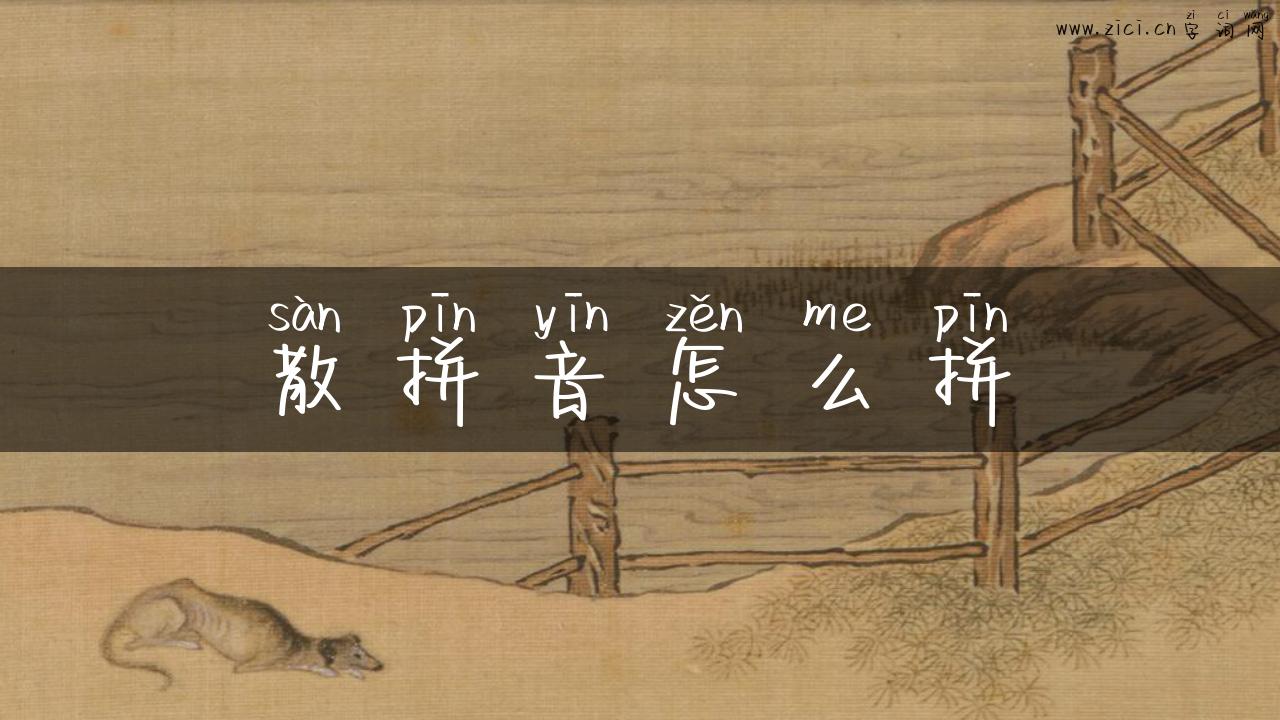 zì cí wǎng
www.zici.cn 字词网
sàn pīn yīn zěn me pīn
散拼音怎么拼